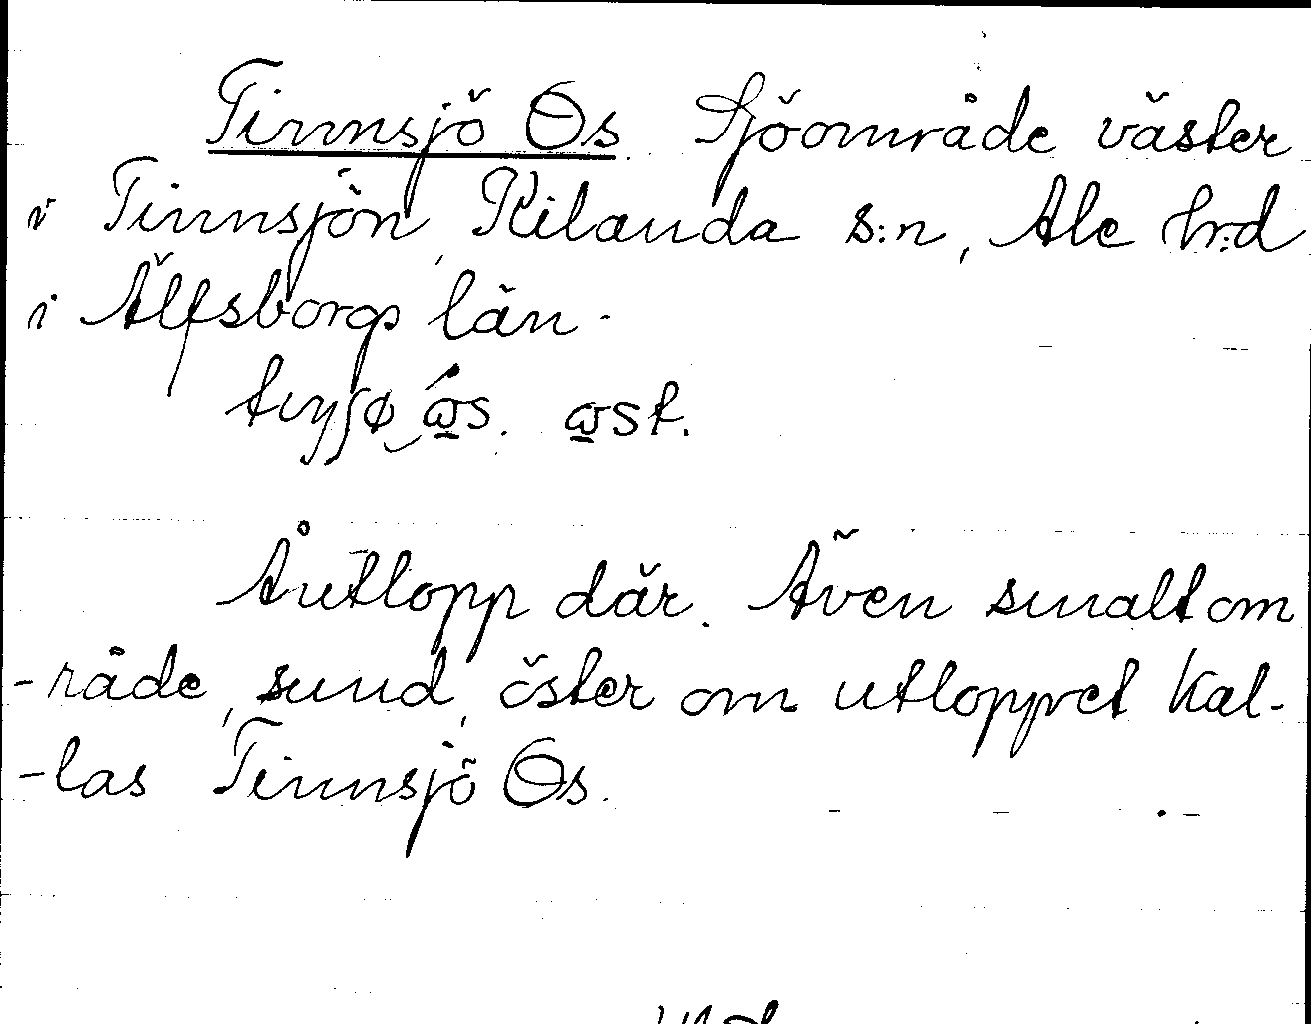 Tinnsjö Os. Sjöområde väster
i Tinnsjön, Kilanda s:n, Ale hr:d
i Älfsborgs län.
Åutlopp där. Även smalt om
-råde, sund, öster om utloppet kal-
-las Tinnsjö Os.